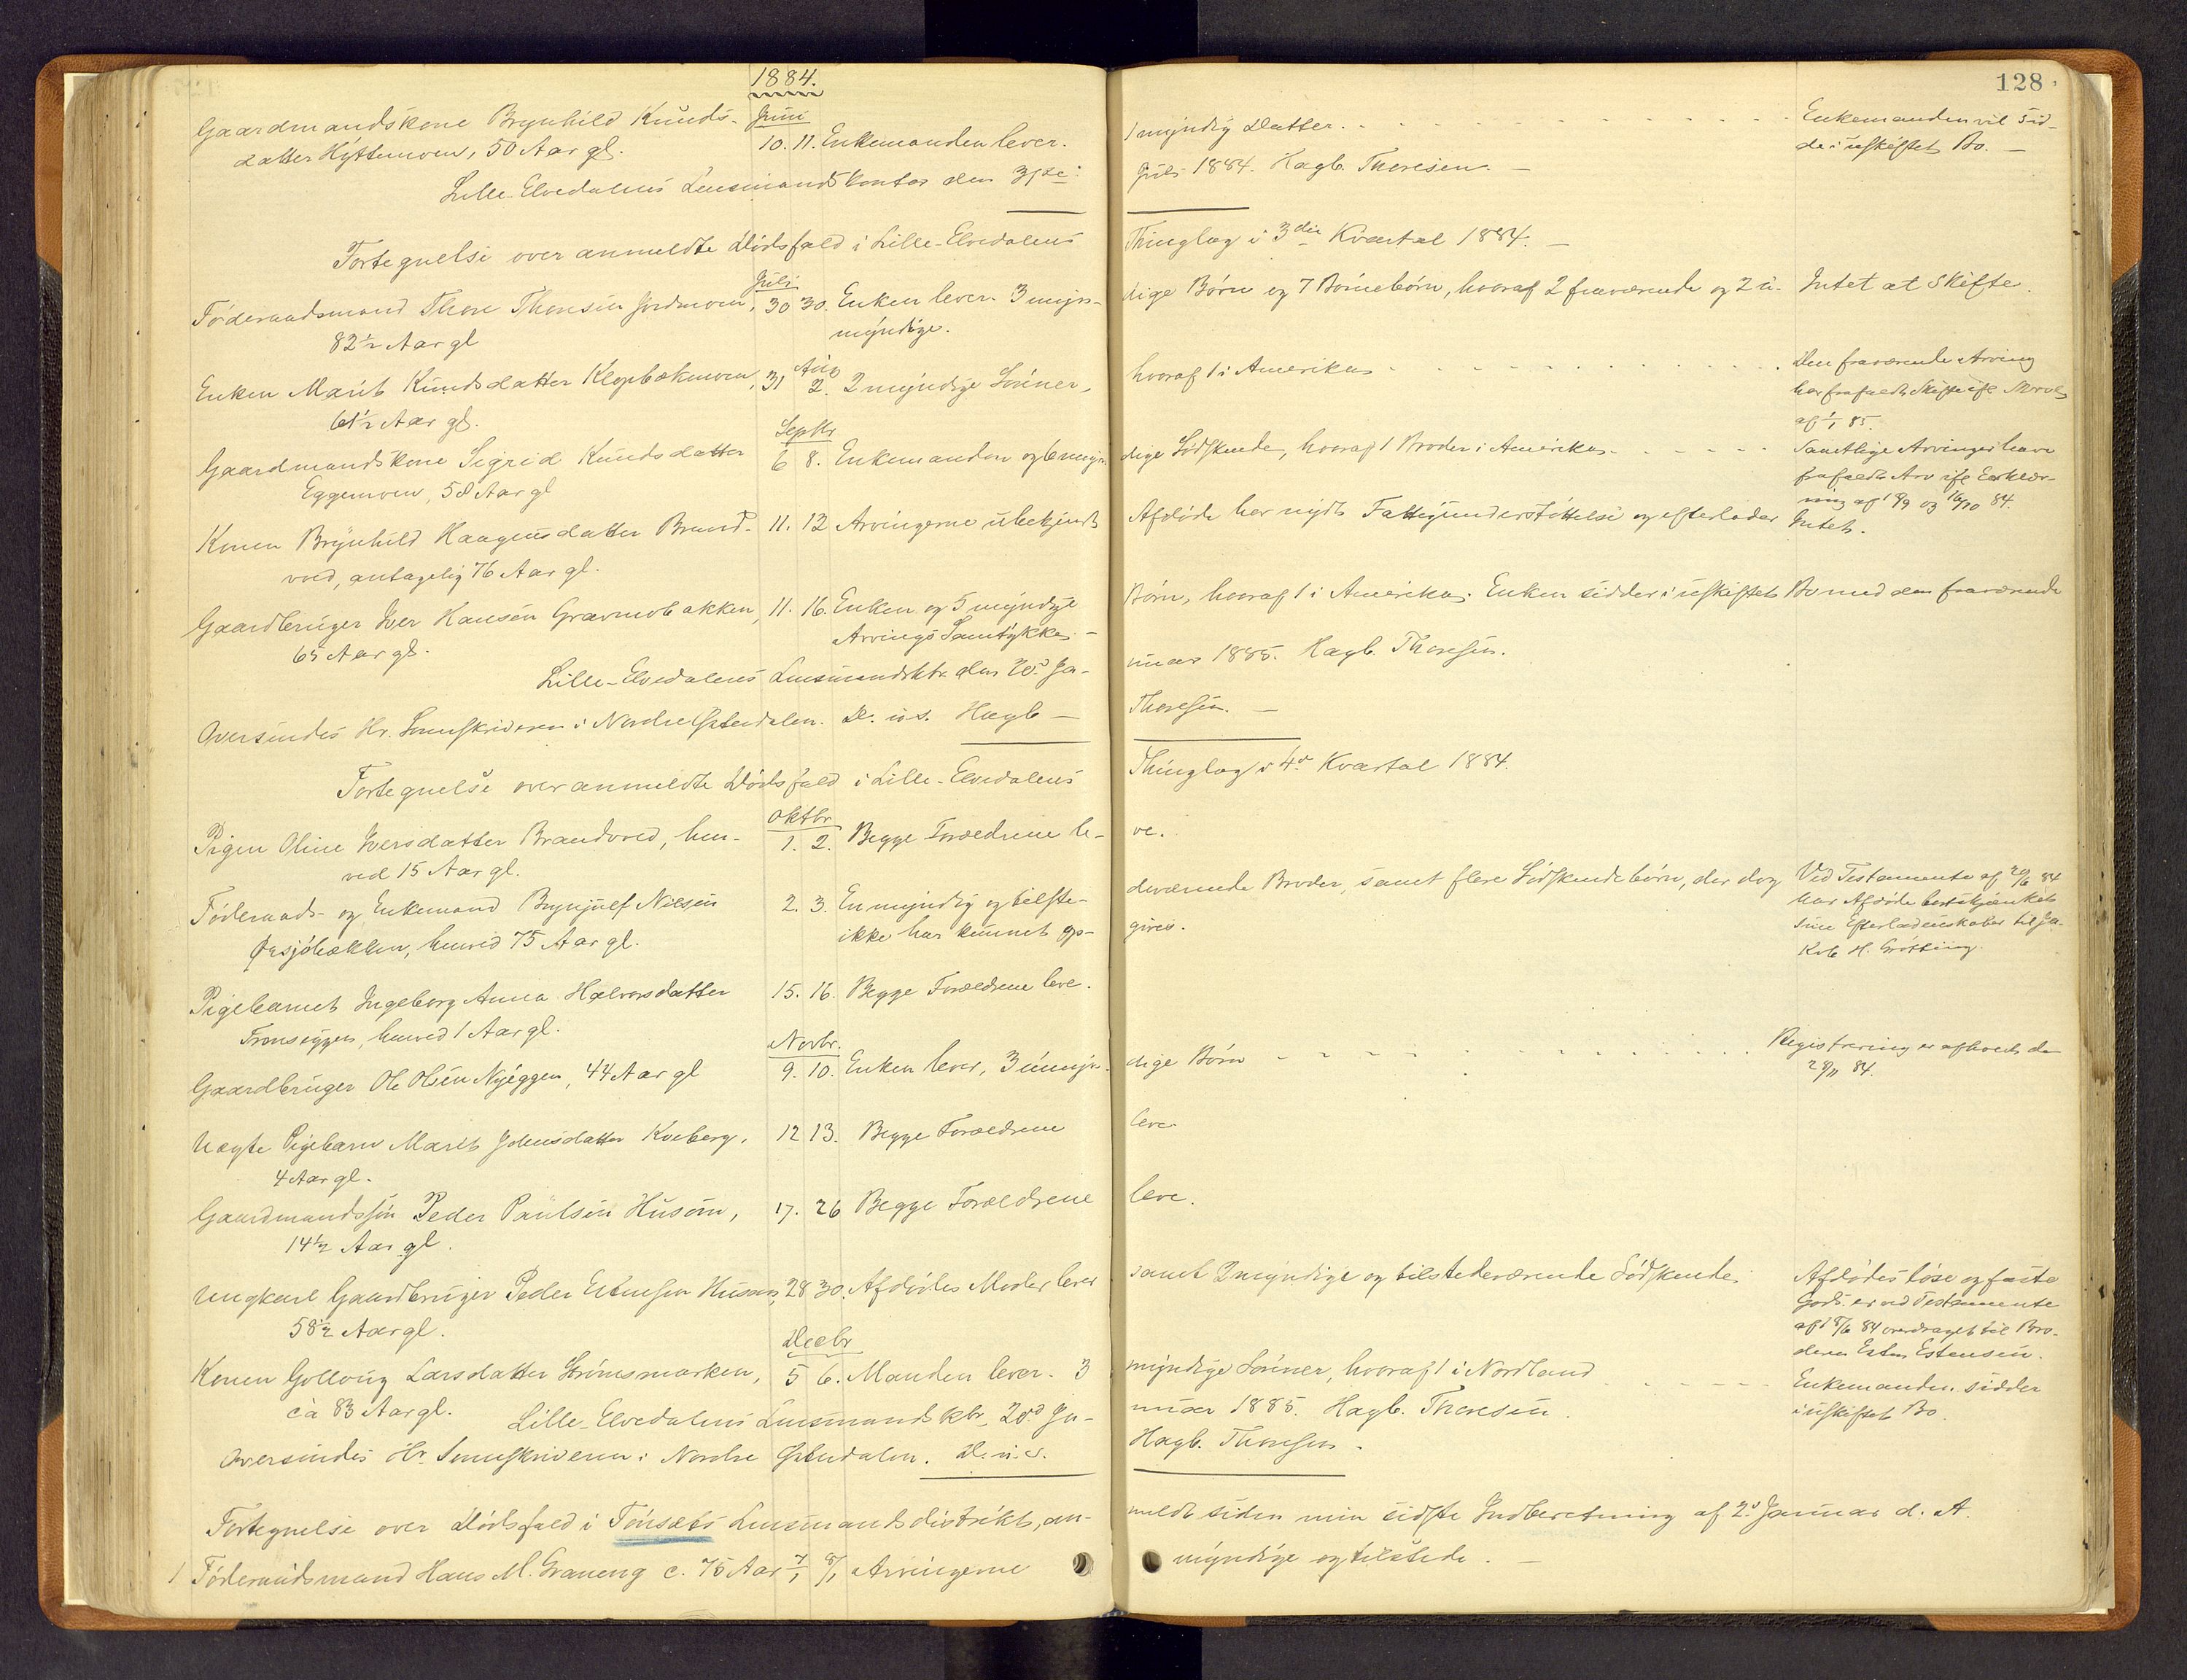 1884.
128
Gaardmandskone Brynhild Knuds-
datter Hyttemoen, 50 Aar gl.
Juni
10. 11. Enkemanden lever.
1 myndig Datter.
Enkemanden vil sid-
de i uskiftet Bo. —
Lille-Elvedalens Lensmandskontor den 31te
Juli 1884. Hagb. Thoresen. —
Fortegnelse over anmeldte Dødsfald i Lille-Elvedalens
Thinglag i 3die Kvartal 1884. —
Juli
Føderaadsmand Thore Thoresen Jordmoen,
82½ Aar gl
30 30. Enken lever. 3 myn-
dige Børn og 7 Børnebørn, hvoraf 2 fraværende og 2 u-
myndige.
Intet at Skifte.
Enken Marit Knudsdatter Klopbækmoen,
61½ Aar gl.
Aug
31 2. 2 myndige Sønner,
hvoraf 1 i Amerika
Den fraværende Arving
har frafaldt Skifte ifl.
af 1/1 85.
Gaardmandskone Sigrid Knudsdatter
Eggemoen, 58 Aar gl
Septbr
6 8. Enkemanden og 6 myn-
dige Sødskende, hvoraf 1 Broder i Amerika
Samtlige Arvinger have
frafaldt Arv ifl Erklær-
ing af 18/9 og 16/10 84.
Konen Brynhild Haagensdatter Brand-
vold, antagelig 76 Aar gl.
11. 12 Arvingerne ubekjendt
Afdøde har nydt Fattigunderstøttelse og efterlader
Intet.
Gaardbruger Iver Hansen Gravmobakken,
65 Aar gl.
11. 16. Enken og 5 myndige
Børn, hvoraf 1 i Amerika. Enken sidder i uskiftet Bo med den fraværende
Arvings Samtykke. —
Lille-Elvedalens Lensmandsktr. den 20de Ja-
nuar 1885. Hagb. Thoresen.
Oversendes Hr. Sorenskriveren i Nordre Østerdalen. D. u. s. Hagb —
Thoresen. —
Fortegnelse over anmeldte Dødsfald i Lille-Elvedalens
Thinglag i 4de Kvartal 1884.
Oktbr
Pigen Oline Iversdatter Brandvold, hen-
ved 15 Aar gl.
1. 2. Begge Forældrene le-
ve.
Føderaads- og Enkemand Brynjulf Nilsen
Øresjøbækken, henved 75 Aar gl.
2. 3. En myndig og tilste-
deværende Broder, samt flere Sødskendebørn, der dog
ikke har kunnet op-
gives.
Ved Testamente af 20/6 84
har Afdøde bortskjænket
sine Efterladenskaber til Ja-
kob H. Grøtting.
Pigebarnet Ingeborg Anna Halvorsdatter
Tronseggen, henved 1 Aar gl.
15. 16. Begge Forældrene leve.
Novbr.
Gaardbruger Ole Olsen Nyeggen, 44 Aar gl
9. 10. Enken lever, 3 umyn-
dige Børn
Registrering er afholdt den
28/11 84.
Uægte Pigebarn Marit Johnsdatter Kveberg,
4 Aar gl.
12 13. Begge Forældrene
leve
Gaardmandssøn Peder Paulsen Husom,
14½ Aar gl.
17. 26 Begge Forældrene
leve.
Ungkarl Gaardbruger Peder Estensen Husom,
58½ Aar gl.
28 30. Afdødes Moder lever
samt 2 myndige og tilstedeværende Sødskende.
Afdødes løse og faste
Gods er ved Testamente
af 18/6 84 overdraget til Bro-
deren Esten Estensen.
Decbr
Konen Gollaug Larsdatter Strømsmarken,
ca 83 Aar gl.
5 6. Manden lever. 3
myndige Sønner, hvoraf 1 i Nordland
Enkemanden sidder
i uskiftet Bo.
Lille-Elvedalens Lensmandsktr. 20de Ja-
nuar 1885. Hagb. Thoresen.
Oversendes Hr. Sorenskriveren i Nordre Østerdalen. D. u. s.
Hagb. Thoresen.
Fortegnelse over Dødsfald i Tønsets Lensmandsdistrikt, an-
meldt siden min sidste Indberetning af 2de Januar d. A.
1 Føderaadsmand Hans M. Graneng c. 75 Aar 7/1 8/1 Arvingerne
myndige og tilstede. —